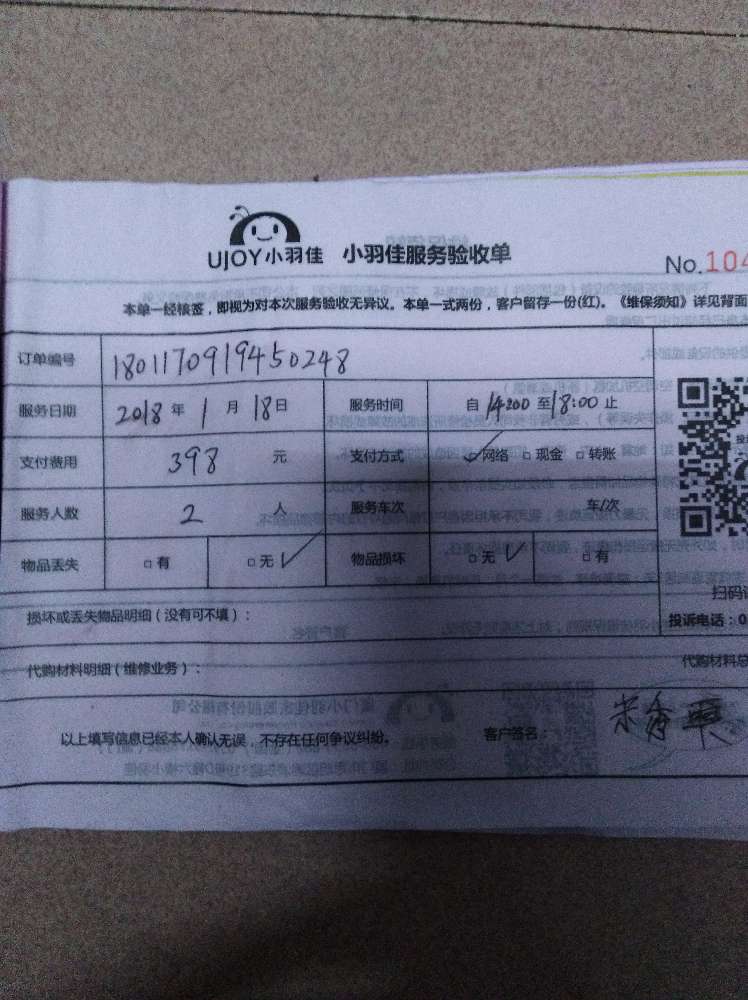 UJOY小羽佳 小羽佳服务验收单
No.104
本单一经核签，即视为对本次服务验收无异议。本单一式两份，客户留存一份(红)。《维保须知》详见背面
订单编号 1801170919450248
服务日期 2018年1月18日 服务时间 自14:00至18:00止
支付费用 398元 支付方式 ☑网络 □现金 □转账
服务人数 2人 服务车次 车/次
物品丢失 □有 □无✓ 物品损坏 □无✓ □有
扫码
损坏或丢失物品明细（没有可不填）：
投诉电话：0
代购材料明细（维修业务）： 代购材料总
以上填写信息已经本人确认无误，不存在任何争议纠纷。 客户签名：